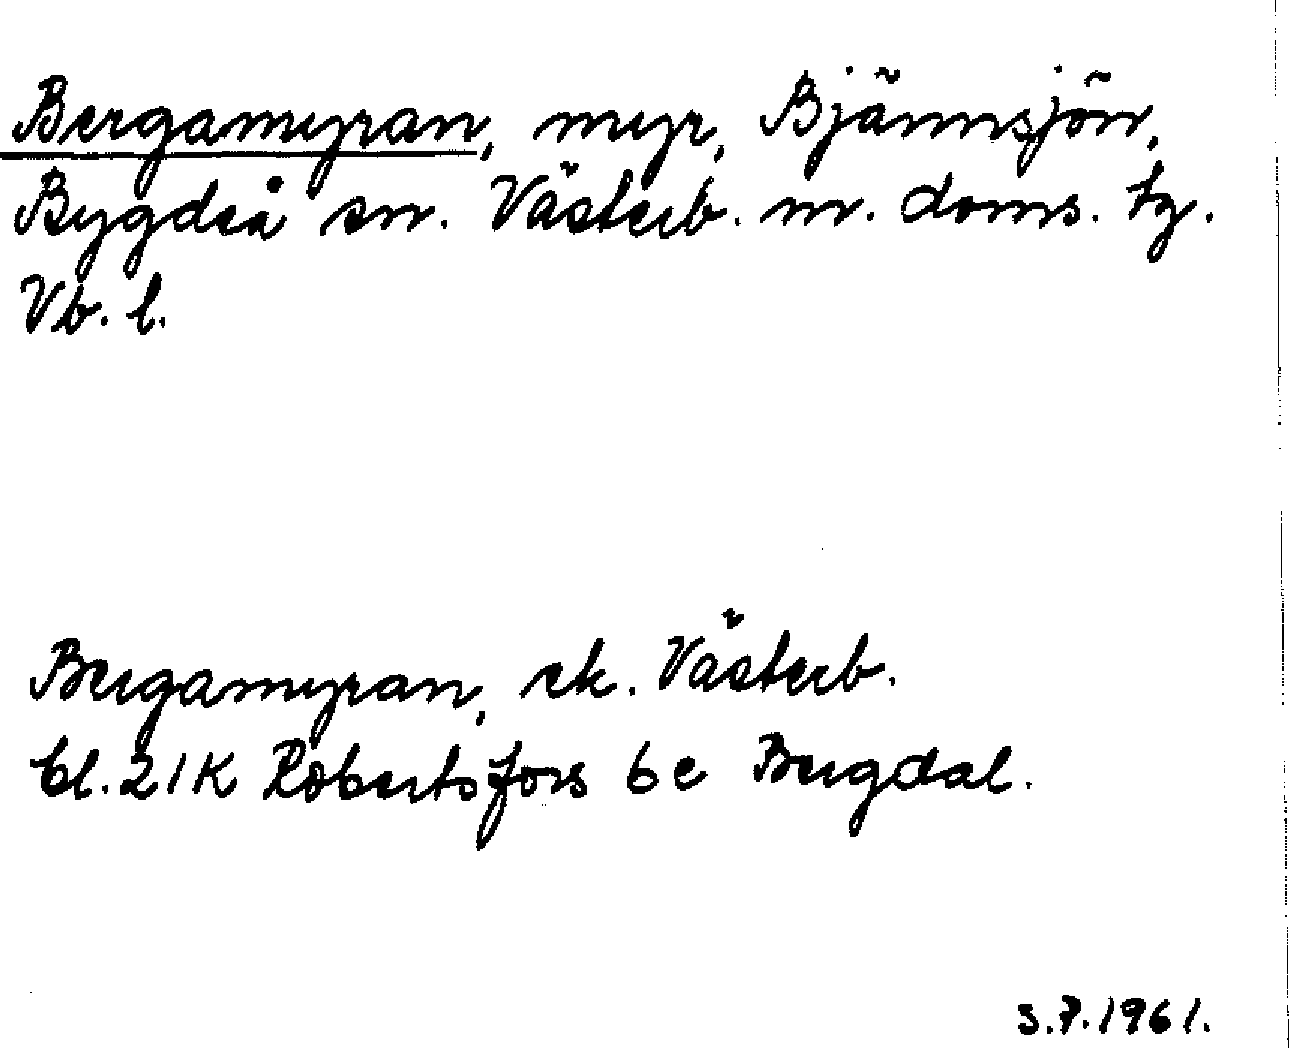 Bergamyran, myr, Bjännsjön,
Bygdeå sn. Västerb. m. doms. tg.
Vb. l.
Bergamyran, ek. Västerb.
bl. 21K Robertsfors 6c Bergdal.
3.7.1961.